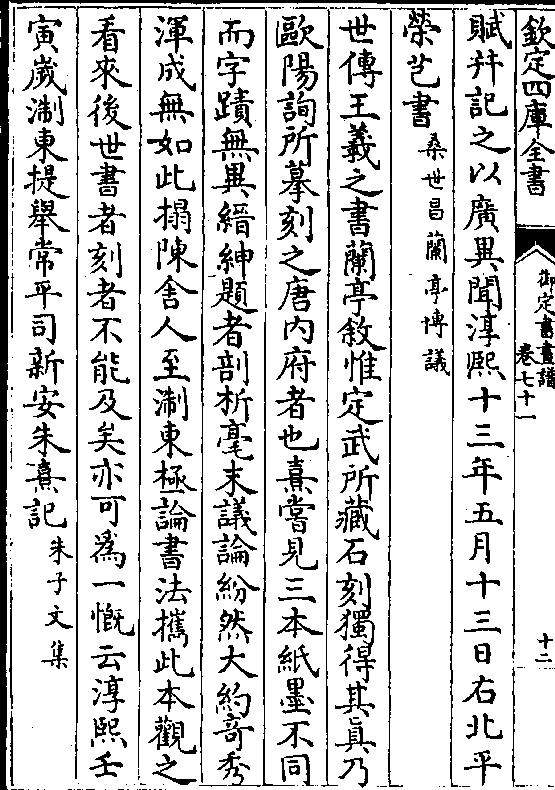 欽定四庫全書
御定書畫譜
卷七十一
十二
賦并記之以廣異聞淳熙十三年五月十三日右北平
榮芑書
桑世昌蘭亭博議
世傳王羲之書蘭亭敘惟定武所藏石刻獨得其真乃
歐陽詢所摹刻之唐内府者也熹嘗見三本紙墨不同
而字蹟無異縉紳題者剖析毫末議論紛然大約奇秀
渾成無如此搨陳舍人至淛東極論書法攜此本觀之
看來後世書者刻者不能及矣亦可為一慨云淳熙壬
寅嵗淛東提舉常平司新安朱熹記
朱子文集